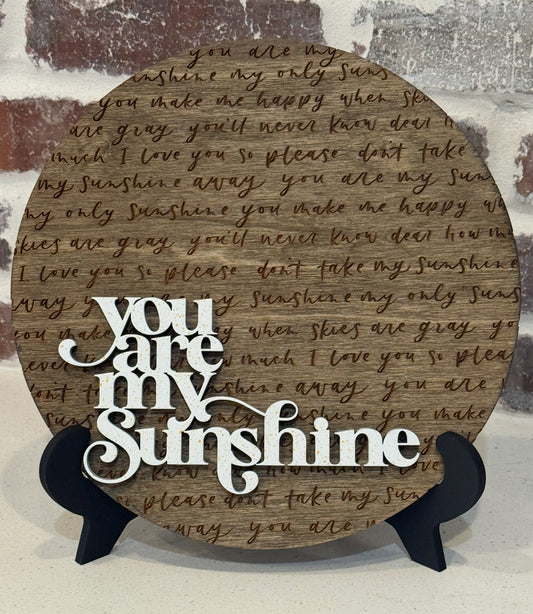 you are my
sunshine my only suns
you make me happy when skies
are gray you'll never know dear h
much I love you so please don't take
my sunshine away you are my sun
my only sunshine you make me happy wh
skies are gray you'll never know dear how m
I love you so please don't take my sunshine
way you happy sunshine my only suns
you make when skies are gray yo
never how much I love you so pleas
don't sunshine away you are m
sunshine only you make
never know
so please don't take my suns
away you are my
you
are
my
Sunshine